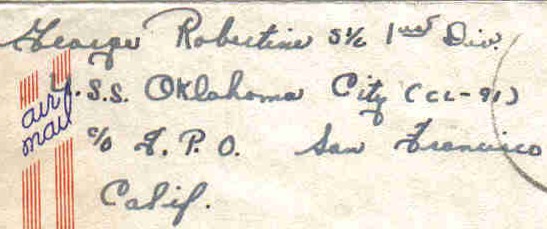 George Robertine S1/c 1st Div.
U.S.S. Oklahoma City (CL-91)
air mail
c/o F.P.O. San Francisco
Calif.